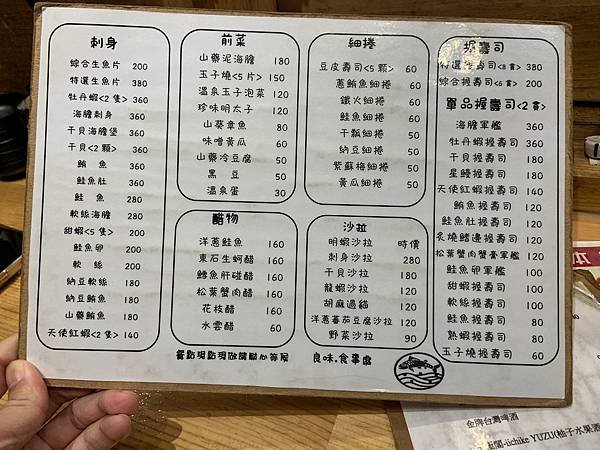 刺身
綜合生魚片 200
特選生魚片 380
牡丹蝦<2隻> 360
海膽刺身 360
干貝海膽堡 360
干貝<2顆> 360
鮪魚 360
鮭魚肚 360
鮭魚 280
軟絲海膽 280
甜蝦<5隻> 280
鮭魚卵 200
軟絲 200
納豆軟絲 180
納豆鮪魚 180
山藥鮪魚 180
天使紅蝦<2隻> 140
前菜
山藥泥海膽 180
玉子燒<5片> 150
溫泉玉子泡菜 120
珍味明太子 120
山葵章魚 80
味噌黃瓜 60
山藥冷豆腐 50
黑豆 50
溫泉蛋 30
醋物
洋蔥鮭魚 160
東石生蚵醋 160
鱈魚肝碰醋 160
松葉蟹肉醋 160
花枝醋 160
水雲醋 60
細捲
豆皮壽司<5顆> 60
蔥鮪魚細捲 60
鐵火細捲 60
鮭魚細捲 60
干瓢細捲 50
納豆細捲 50
紫蘇梅細捲 50
黃瓜細捲 50
沙拉
明蝦沙拉 時價
刺身沙拉 280
干貝沙拉 180
龍蝦沙拉 120
胡麻過貓 120
洋蔥蕃茄豆腐沙拉 120
野菜沙拉 90
握壽司
特選握壽司<8貫> 380
綜合握壽司<6貫> 200
單品握壽司<2貫>
海膽軍艦 360
牡丹蝦握壽司 360
干貝握壽司 180
星鰻握壽司 180
天使紅蝦握壽司 140
鮪魚握壽司 120
鮭魚肚握壽司 120
炙燒鰭邊握壽司 120
松葉蟹肉蟹膏軍艦 120
鮭魚卵軍艦 100
甜蝦握壽司 100
軟絲握壽司 100
鮭魚握壽司 80
熟蝦握壽司 80
玉子燒握壽司 60
餐點現點現做請耐心等候
良味.食事處
金牌台灣啤酒
iichike YUZU(柚子水果酒